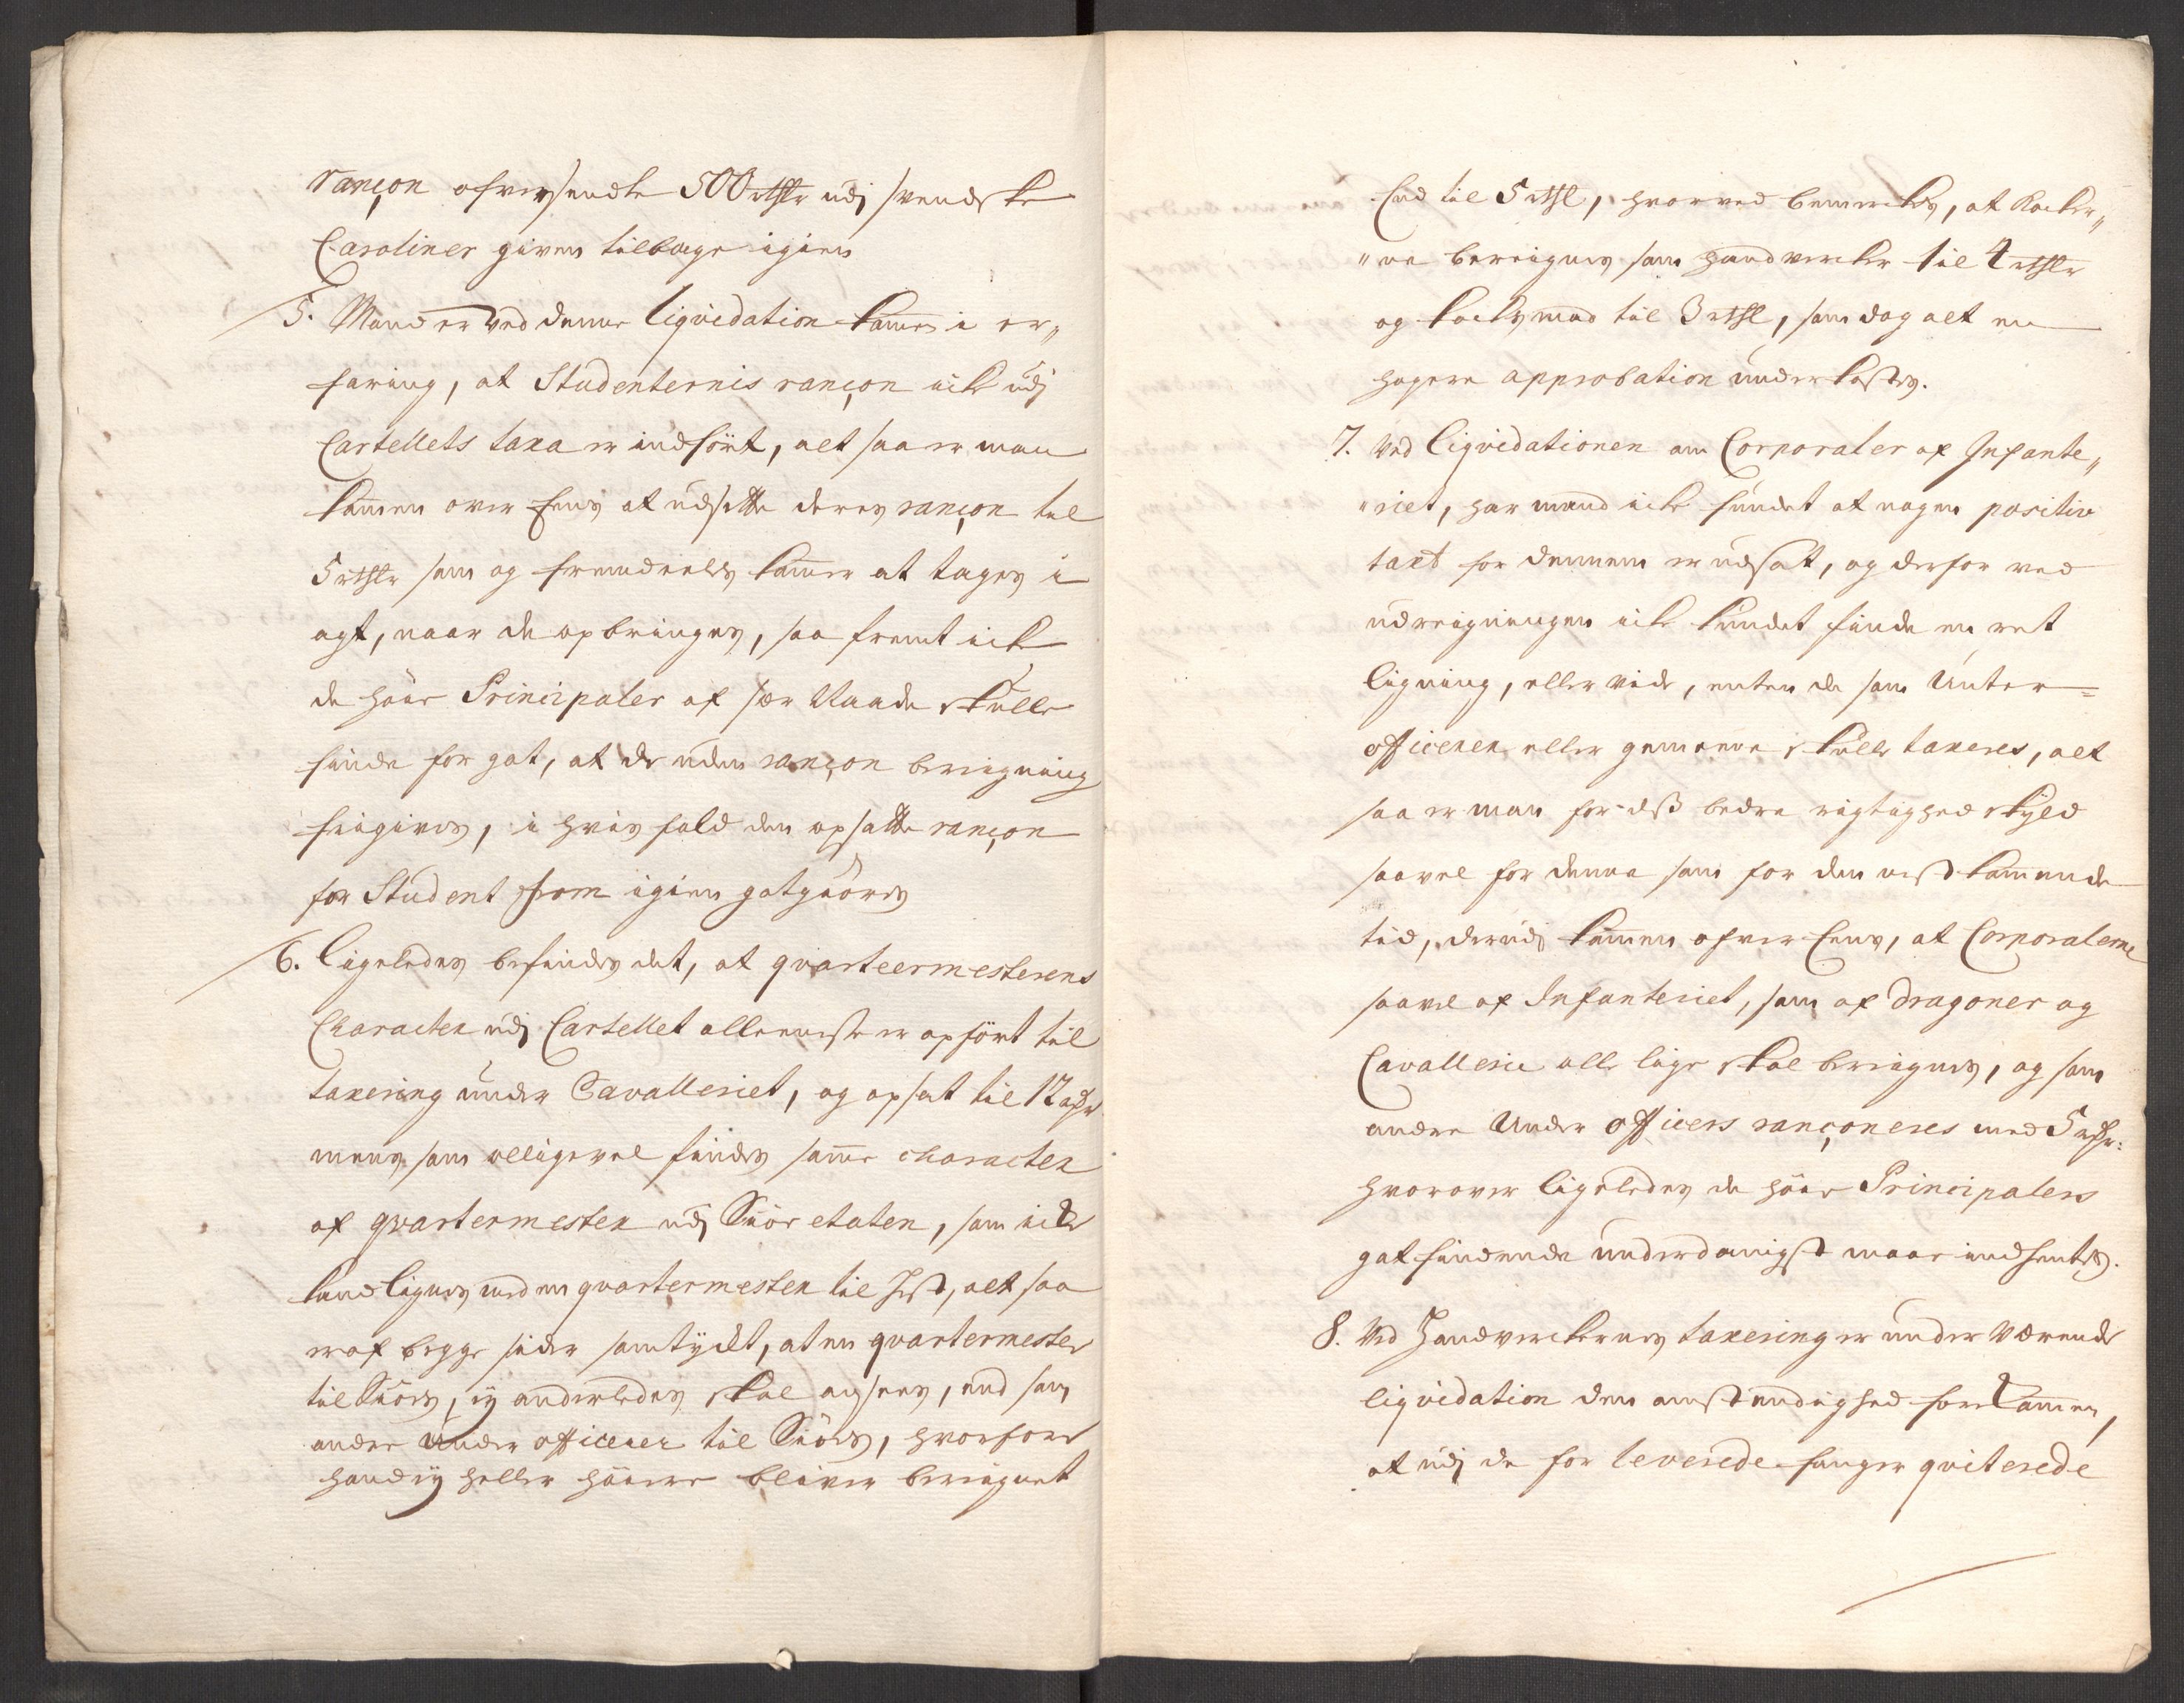 rançon ofversendte 500 rthlr udj svendske
Caroliner given tilbage igien
5. Mand er ved denne liqvidation kommen i er„
faring, at Studenternis rançon icke udj
Cartellets taxa er indfört, alt saa er man
kommen over Eens at udsætte deres rançon til
5 rthlr som og fremdeeles kommer at tages i
agt, naar de opbringes, saa fremt icke
de höÿe Principaler af sær Naade skulle
finde for got, at de uden rançon beregning
frigives, i hvis fald den opsatte rançon
for Student som igien gotgiöres
6. Ligeledes befindes det, at qvarteermesterens
Character udj Cartellet alleeneste er opfört til
taxering under Cavalleriet, og opsat til 12 rdr
mens som alligevel findes samme character
af qvartermester udj Siöe etaten, som icke
kand lignes med en qvartermester til Hest, alt saa
er af begge sider samtyckt, at en qvartermester
til Siöes, ej anderledes skal agtes, end som
andre Under officerer til Siöes, hvorfore
hand ej heller höÿere bliver beregnet
End til 5 rthl, hvor ved bemerckes, at Kocker„
„ne beregnes som handvercker til 4 rthlr
og kocksmad til 3 rthl, som dog alt en
hoyere approbation underkastes.
7. Ved liqvidationen om Corporaler af Infante„
„riet, har mand icke fundet at nogen positiv
taxt for dennem er udsat, og derfor ved
udregningen icke kundet finde en ret
ligning, eller vide, enten de som Unter=
officerer eller gemeene skulle taxeres, alt
saa er man for dess bedre rigtighed skyld
saavel for denne som for den nest kommende
tid, derudj kommen ofver Eens, at Corporalerne
saavel af Infanteriet, som af dragoner og
Cavallerie alle lige skal beregnes, og som
andre Under officers rançoneres med 5 rdr:
hvorover ligeledes de höÿe Principalers
gotfindende underdanigst maae indhentes.
8. Ved Handverckernes taxering er under værende
liqvidation den omstendighed forekommen,
at udj de for leverede fanger qviterede